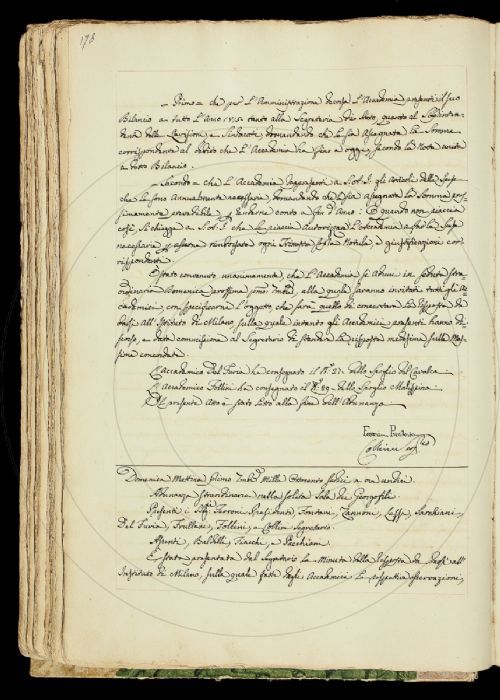 178
= Primo = che per l'Amministrazione decorsa l'Accademia presenti il suo
Bilancio a tutto l'Anno tanto alla Segreteria di Stato, quanto al
della e Sindacati, domandando che le sia assegnata la Somma
corrispondente al debito che l'Accademia ha fino a oggi, secondo la Nota unita
a detto Bilancio.
= Secondo = che l'Accademia rappresenti a S.A.I. gli Articoli delle Spese
che le sono Annualmente necessarie, domandando che le sia assegnata la Somma
prevedibile, per renderne conto a fin d'Anno: E quando non piaccia
così, si chiegga a S.A.I. che le piaccia autorizzare l'Accademia a far le Spese
necessarie per esserne rimborsata ogni Trimestre colla Notula, e giustificazioni cor-
rispondenti.
È stato convenuto unanimamente, che l'Accademia si aduni in seduta stra-
ordinaria Domenica prossima primo alla quale saranno invitati tutti gli Ac-
cademici, con specificarne l'oggetto, che sarà quello di concertare la Risposta da
darsi all'Istituto di Milano, sulla quale intanto gli Accademici presenti hanno di-
scorso, e data comissione al Segretario di stendere la risposta medesima sulle Mas-
sime concordate.
L'Accademico Del Furia ha consegnato il N.° 27. dello Spoglio del Cavalca
L'Accademico Follini ha consegnato il N.° 29. dello Spoglio Malispini.
Il presente Atto è stato letto alla fine dell'Adunanza
Collini
Domenica Mattina primo Mille Ottocento sedici a ore undici.
Adunanza straordinaria nella solita Sala dei Georgofili.
Presenti i Sigg. Ferroni Presidente, Fontani, Zannoni, Lessi, Sarchiani,
Del Furia, Frullani, Follini, e Collini Segretario.
Assenti, Baldelli, Fiacchi, e Pacchiani
È stata presentata dal Segretario la Minuta della Risposta da darsi all'
Instituto di Milano, sulla quale fatte dagli Accademici le rispettive osservazioni,